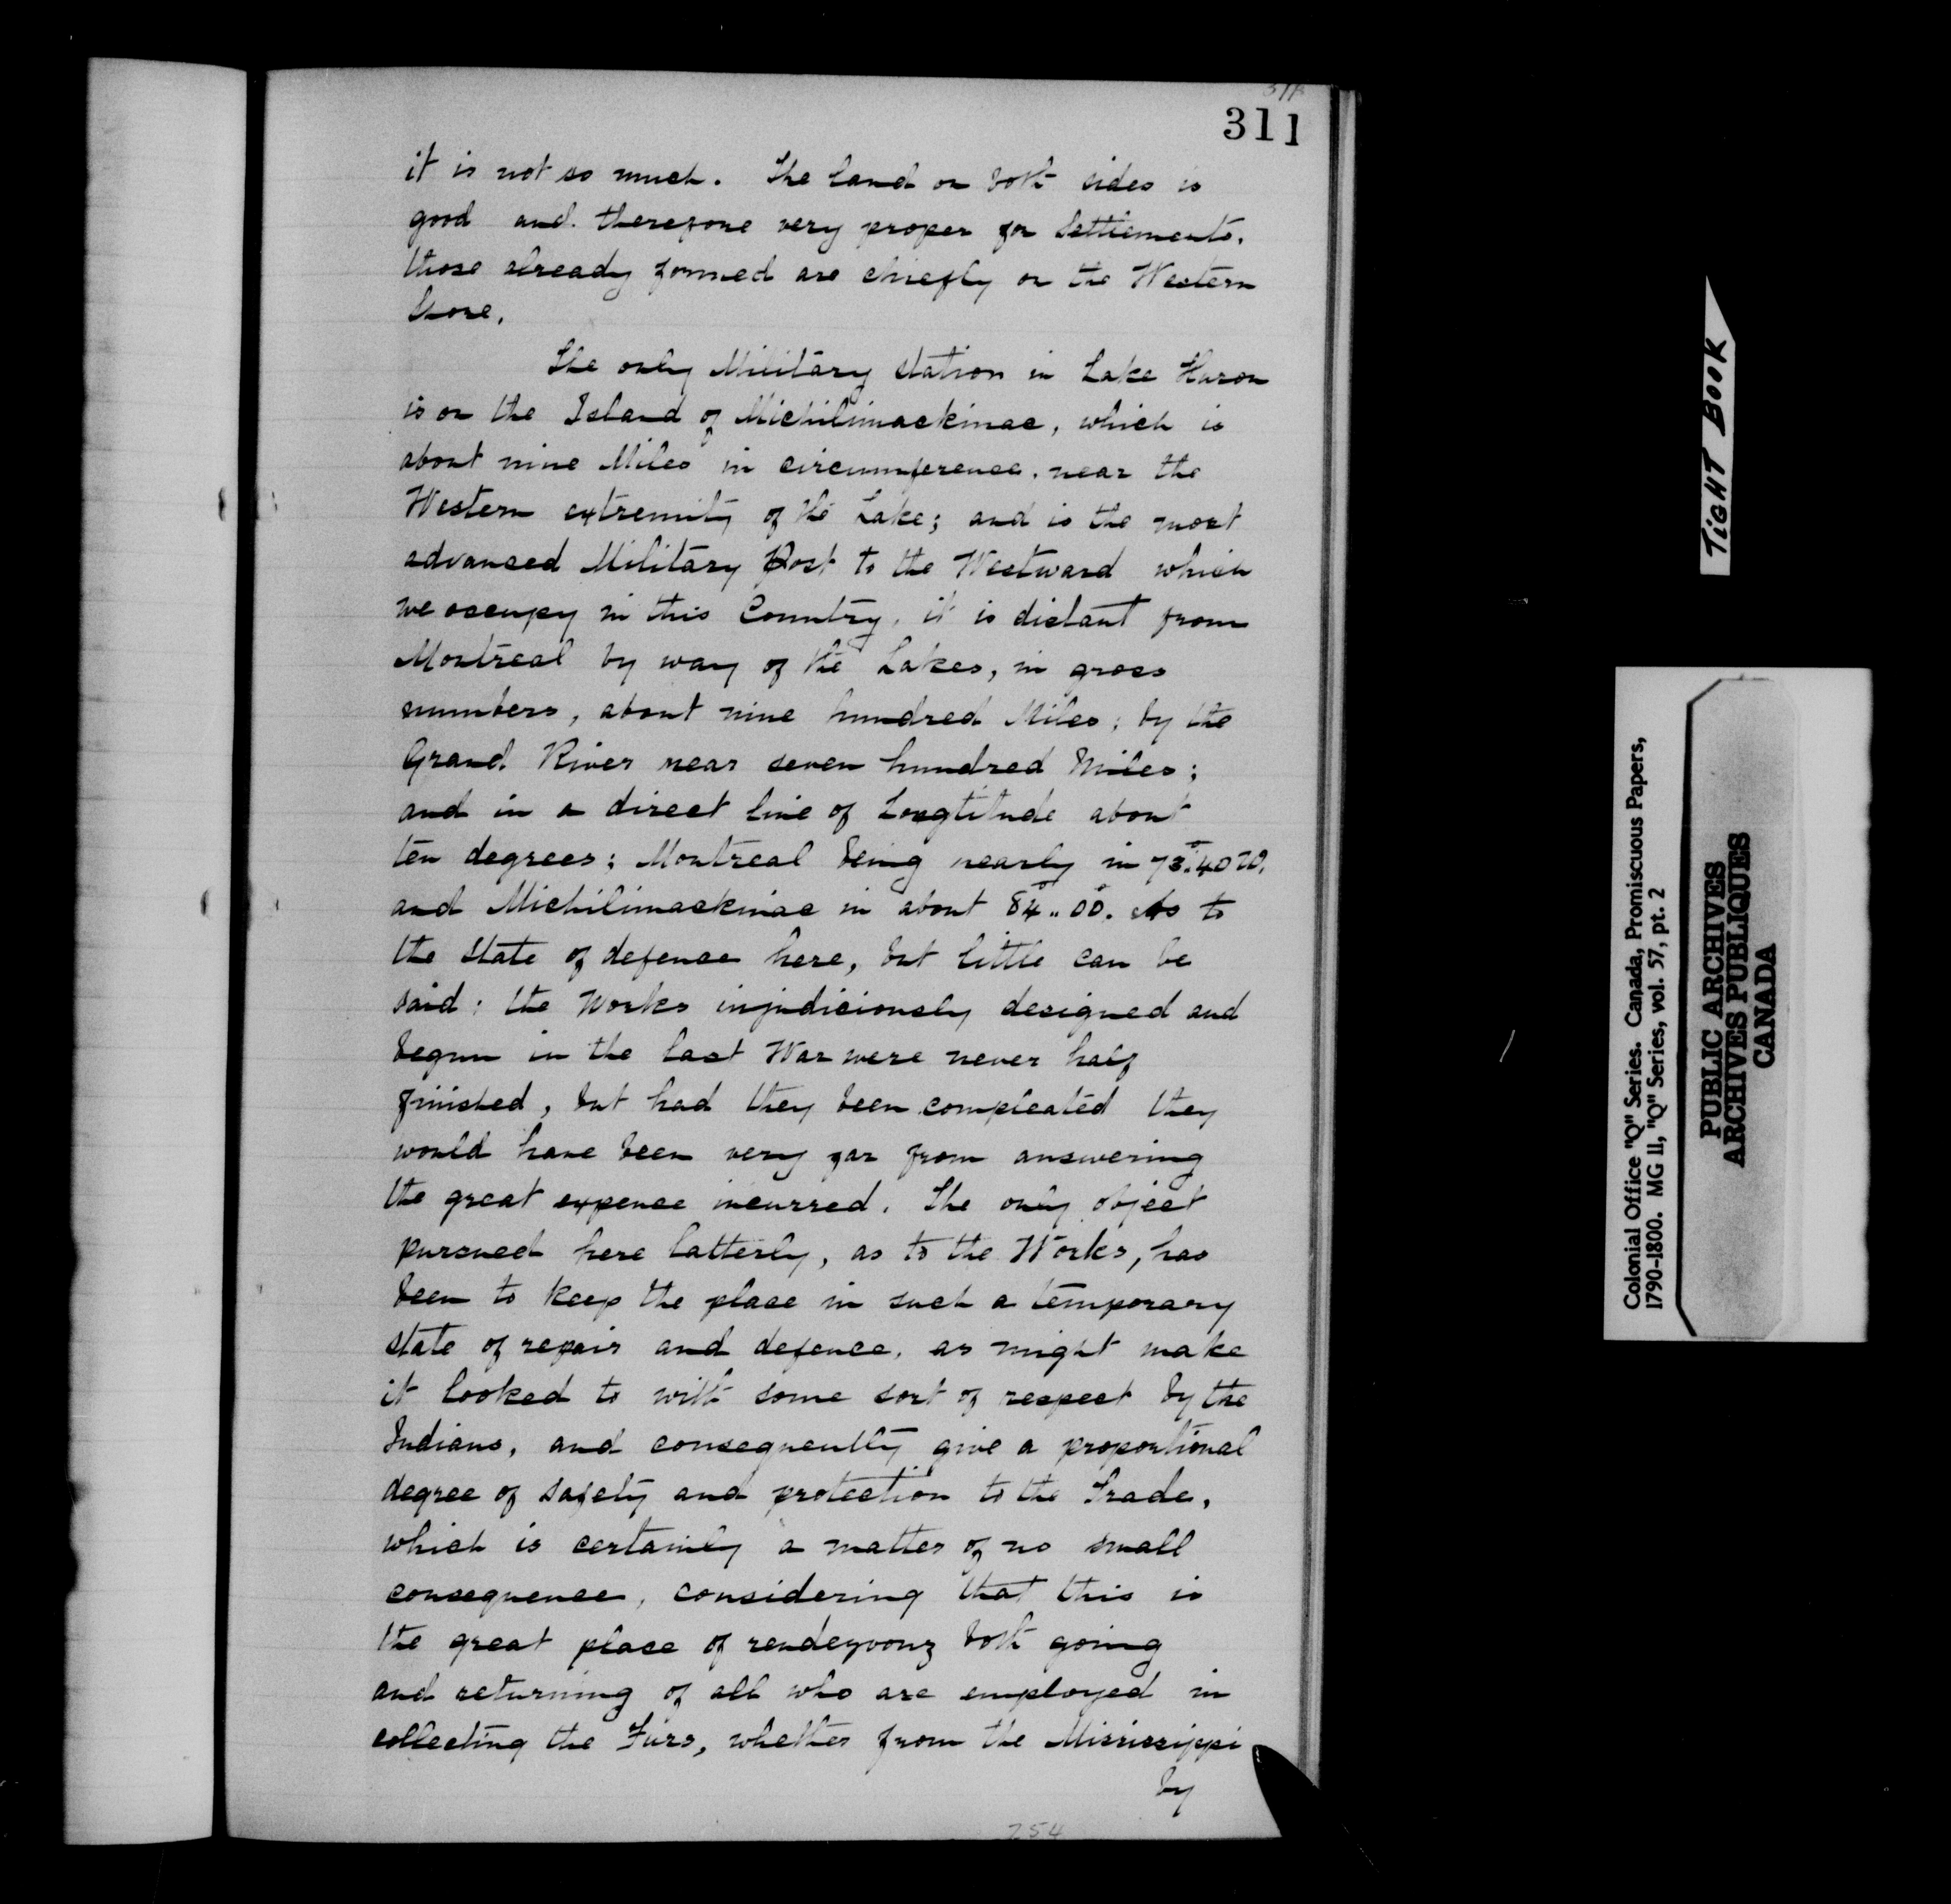 311
it is not so much. The land on both sides is
good and therefore very proper for Settlements.
those already formed are chiefly on the Western
Shore.
The only Military station in Lake Huron
is on the Island of Michilimackinac, which is
about nine Miles in circumference. near the
Western extremity of the Lake; and is the most
advanced Military Post to the Westward which
we occupy in this Country. it is distant from
Montreal by way of the Lakes, in gross
numbers, about nine hundred Miles; by the
Grand River near seven hundred Miles;
and in a direct line of Longtitude about
ten degrees; Montreal being nearly in 73°.40 W.
and Michilimackinac in about 84°..00. As to
the state of defence here, but little can be
said: the Works injudiciously designed and
begun in the last War were never half
finished, but had they been compleated they
would have been very far from answering
the great expence incurred. The only object
pursued here latterly, as to the Works, has
been to keep the place in such a temporary
state of repair and defence, as might make
it looked to with some sort of respect by the
Indians, and consequently give a proportional
degree of safety and protection to the Trade,
which is certainly a matter of no small
consequence, considering that this is
the great place of rendezvouz both going
and returning of all who are employed in
collecting the Furs, whether from the Mississippi
by
254
TIGHT BOOK
Colonial Office "Q" Series. Canada, Promiscuous Papers,
1790-1800. MG 11, "Q" Series, vol. 57, pt. 2
PUBLIC ARCHIVES
ARCHIVES PUBLIQUES
CANADA